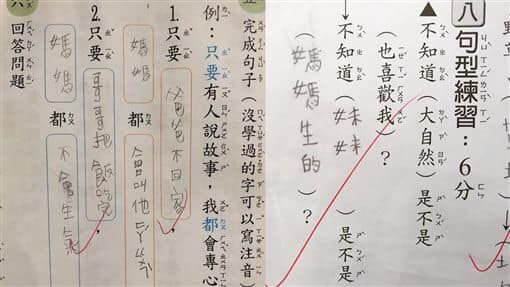 八 句型練習：6分
▲不知道（大自然）是不是
（也喜歡我）？
→不知道（妹妹）是不是
（媽媽生的）？
完成句子（沒學過的字可以寫注音）
例：只要有人說故事，我都會專心
1.只要爸爸不回家，
媽媽都會叫他
2.只要哥哥把飯吃完，
媽媽都不會生氣
六 回答問題